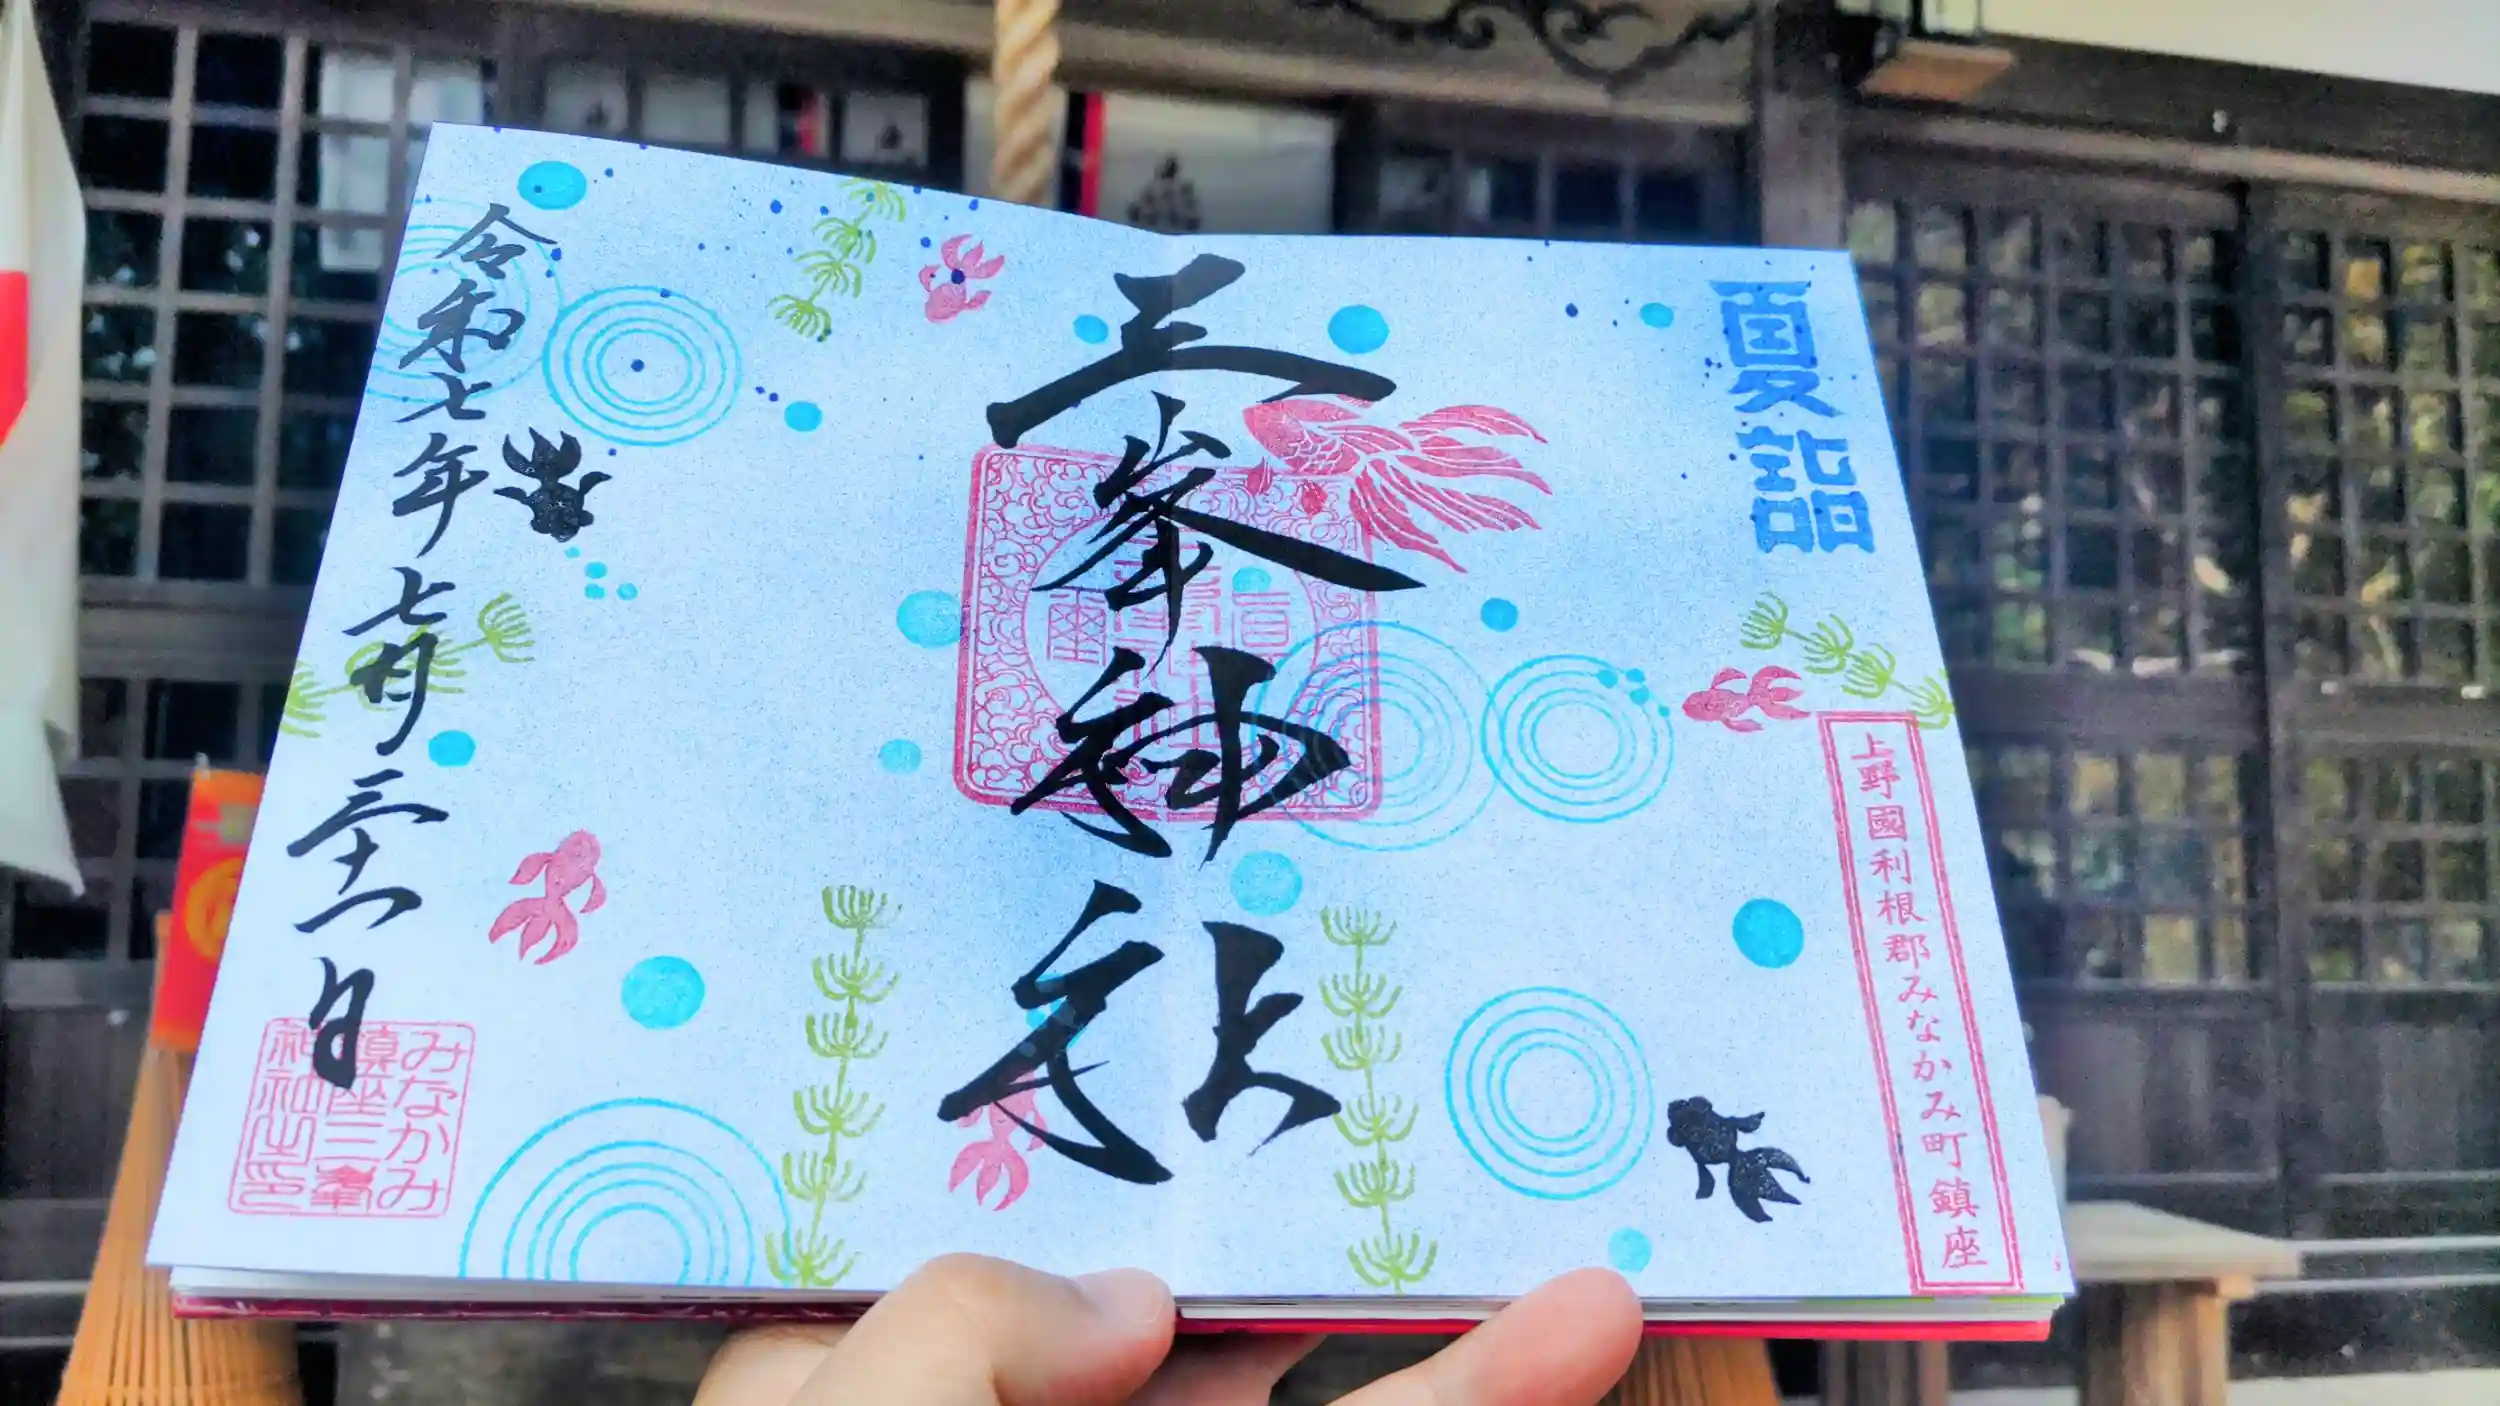 夏詣
上野國利根郡みなかみ町鎮座
三峯神社
令和七年七月三十一日
みなかみ
鎮座三峯
神社之印